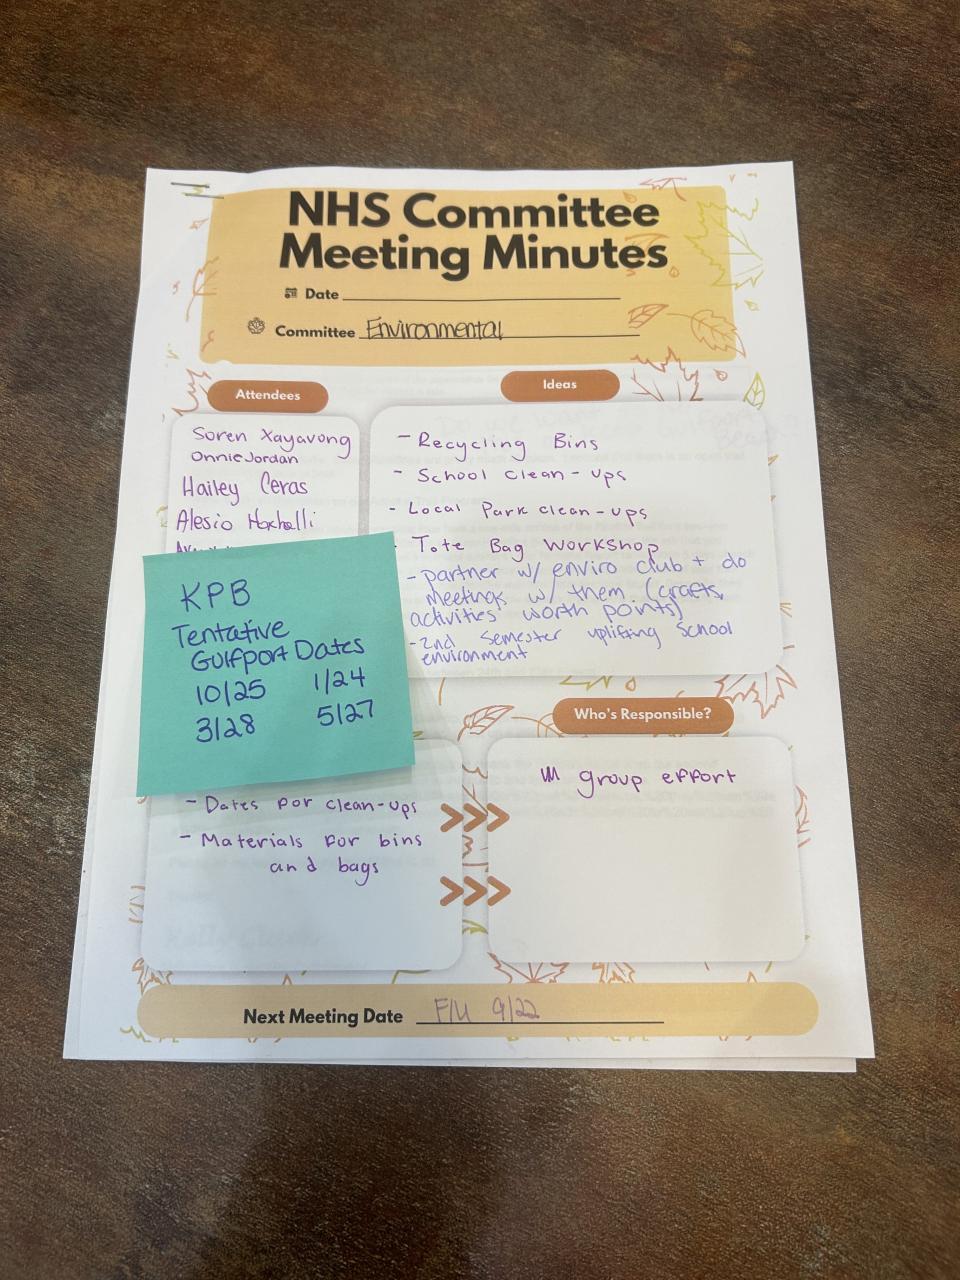 NHS Committee
Meeting Minutes
Date
Committee Environmental
Attendees
Soren Xayavong
Onnie Jordan
Hailey Ceras
Alesio
Ideas
- Recycling Bins
- School clean-ups
- Local Park clean-ups
- Tote Bag Workshop
- partner w/ enviro club + do
meetings w/ them (crafts,
activities worth points)
- 2nd semester uplifting school
environment
KPB
Tentative
Gulfport Dates
10/25 1/24
3/28 5/27
- Dates for clean-ups
- Materials for bins
and bags
Who's Responsible?
group effort
Next Meeting Date F/U 9/22